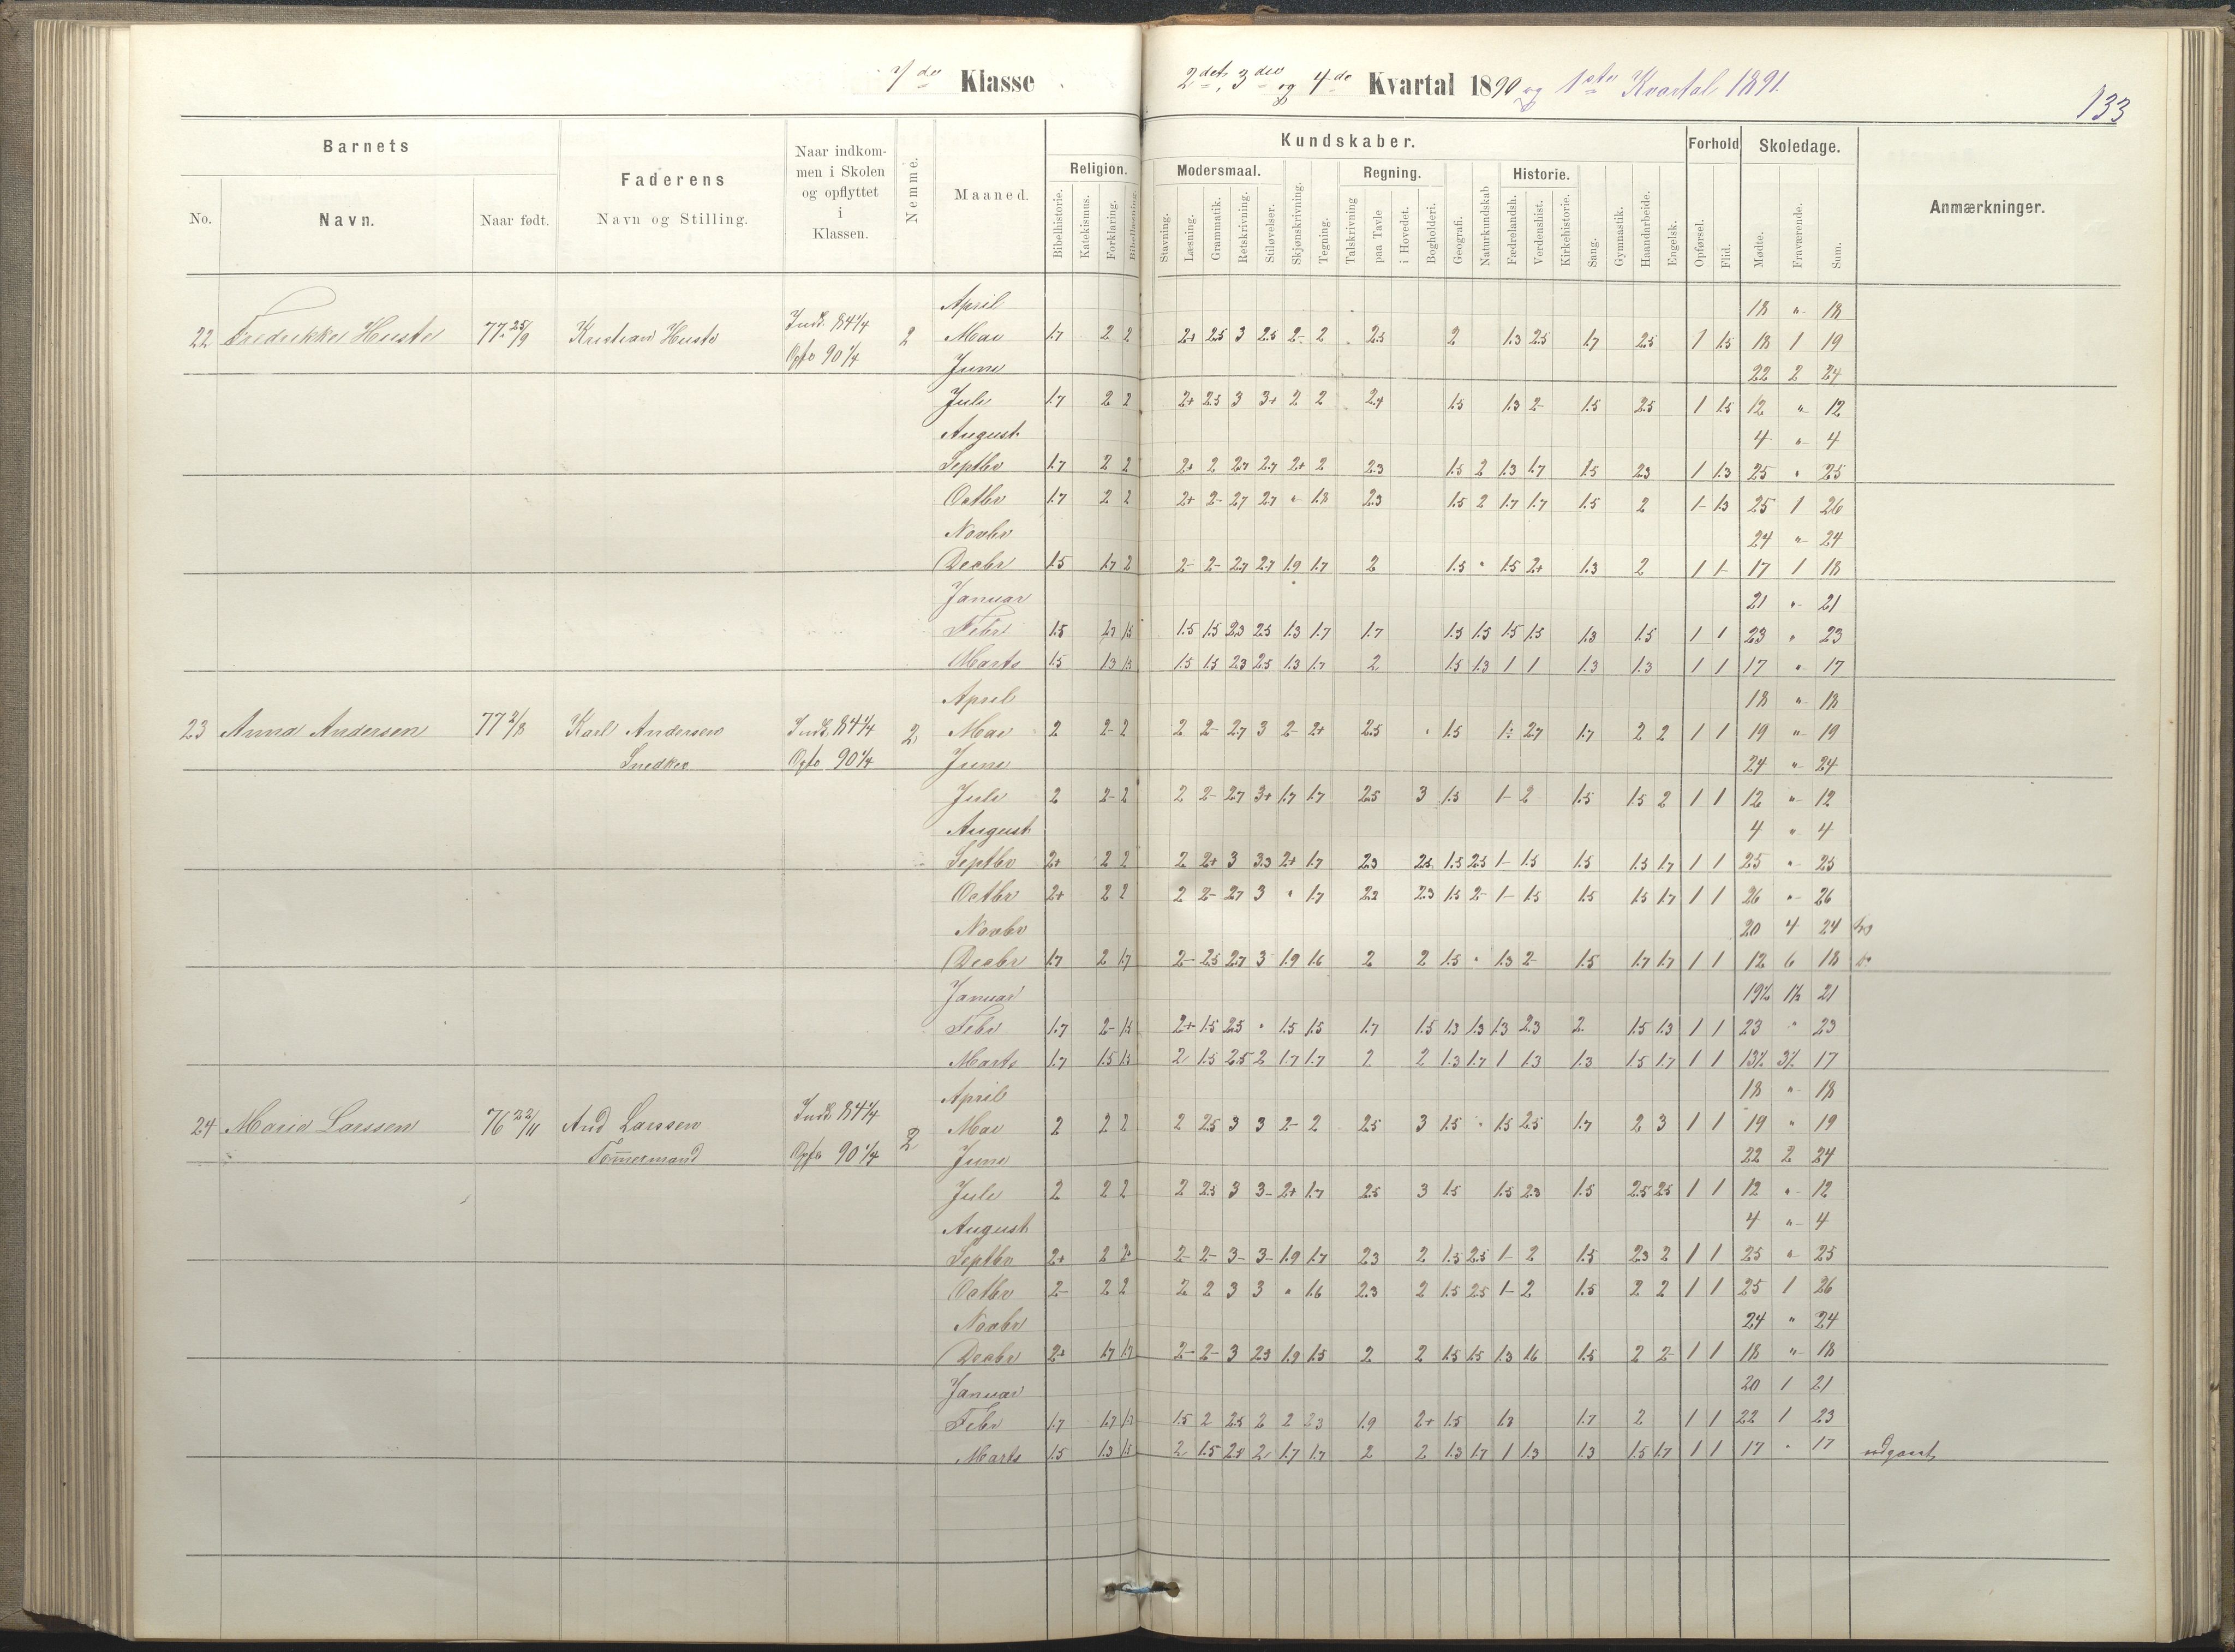 7de Klasse
2det, 3die og 4de Kvartal 1890 og 1ste Kvartal 1891.
133
Barnets
No. Navn. Naar født.
Faderens
Navn og Stilling.
Naar indkom-
men i Skolen
og opflyttet
i
Klassen.
Nemme.
Maaned.
Kundskaber.
Religion. Modersmaal. Regning. Historie.
Bibelhistorie. Katekismus. Forklaring. Bibellæsning. Stavning. Læsning. Grammatik. Retskrivning. Stiløvelser. Skjønskrivning. Tegning. Talskrivning paa Tavle i Hovedet. Bogholderi. Geografi. Naturkundskab Fædrelandsh. Verdenshist. Kirkehistorie. Sang. Gymnastik. Haandarbeide. Engelsk.
Forhold
Opførsel. Flid.
Skoledage.
Mødte. Fraværende. Sum.
Anmærkninger.
April 18 " 18
22 Fredrikke Heiste 77 25/9 Kristian Heiste Indk. 84 1/4 2 Mai 1.7 2 2 2+ 2.5 3 2.5 2- 2 2.5 2 1.3 2.5 1.7 2.5 1 1.5 18 1 19
Opfl. 90 1/4 Juni 22 2 24
Juli 1.7 2 2 2+ 2.5 3 3+ 2 2 2.4 1.5 1.3 2- 1.5 2.5 1 1.5 12 " 12
August 4 " 4
Septbr 1.7 2 2 2+ 2 2.7 2.7 2+ 2 2.3 1.5 2 1.3 1.7 1.5 2.3 1 1.3 25 " 25
Octbr 1.7 2 2 2+ 2- 2.7 2.7 " 1.8 2.3 1.5 2 1.7 1.7 1.5 2 1- 1.3 25 1 26
Novbr 24 " 24
Decbr 1.5 1.7 2 2- 2- 2.7 2.7 1.9 1.7 2 1.5 " 1.5 2+ 1.3 2 1 1- 17 1 18
Januar 21 " 21
Febr 1.5 2.7 1.5 1.5 1.5 2.3 2.5 1.3 1.7 1.7 1.5 1.5 1.5 1.5 1.3 1.5 1 1 23 " 23
Marts 1.5 1.3 1.5 1.5 1.5 2.3 2.5 1.3 1.7 2 1.5 1.3 1 1 1.3 1.3 1 1 17 " 17
April 18 " 18
23 Anna Andersen 77 2/8 Karl Andersen Indk. 84 1/4 2 Mai 2 2- 2 2 2- 2.7 3 2- 2+ 2.5 " 1.5 1- 2.7 1.7 2 2 1 1 19 " 19
Snedker Opfl. 90 1/4 Juni 24 " 24
Juli 2 2- 2 2 2- 2.7 3+ 1.7 1.7 2.5 3 1.5 1- 2 1.5 1.5 2 1 1 12 " 12
August 4 " 4
Septbr 2+ 2 2 2 2+ 3 3.3 2+ 1.7 2.3 2.5 1.5 2.5 1- 1.5 1.5 1.5 1.7 1 1 25 " 25
Octbr 2+ 2 2 2 2- 2.7 3 " 1.7 2.2 2.3 1.5 2- 1- 1.5 1.5 1.5 1.7 1 1 26 " 26
Novbr 20 4 24
Decbr 1.7 2 1.7 2- 2.5 2.7 3 1.9 1.6 2 2 1.5 " 1.3 2- 1.5 1.7 1.7 1 1 12 6 18
Januar 19½ 1½ 21
Febr 1.7 2- 1.5 2+ 1.5 2.5 " 1.5 1.5 1.7 1.5 1.3 1.3 1.3 2.3 2 1.5 1.3 1 1 23 " 23
Marts 1.7 1.5 1.5 2 1.5 2.5 2 1.7 1.7 2 2 1.3 1.7 1 1.3 1.3 1.5 1.7 1 1 13½ 3½ 17
April 18 " 18
24 Marie Larssen 76 22/11 And Larssen Indk 84 1/4 2 Mai 2 2 2 2 2.5 3 3 2- 2 2.5 3 1.5 " 1.5 2.5 1.7 2 3 1 1 19 " 19
Tømermand Opfl. 90 1/4 Juni 22 2 24
Juli 2 2 2 2 2.5 3 3- 2+ 1.7 2.5 3 1.5 1.5 2.3 1.5 2.5 2.5 1 1 12 " 12
August 4 " 4
Septbr 2+ 2 2+ 2- 2- 3- 3- 1.9 1.7 2.3 2 1.5 2.5 1- 2 1.5 2.3 2 1 1 25 " 25
Octbr 2- 2 2 2 2 3 3 " 1.6 2.3 2 1.5 2.5 1- 2 1.5 2 2 1 1 25 1 26
Novbr 24 " 24
Decbr 2+ 1.7 1.7 2- 2- 3 2.3 1.9 1.5 2 2 1.5 1.5 1.3 1.6 1.5 2 2- 1 1 18 " 18
Januar 20 1 21
Febr 1.7 1.7 1.7 1.5 2 2.5 2 2 2.3 1.9 2+ 1.5 1.3 1.7 2 1 1 22 1 23
Marts 1.5 1.3 1.5 2 1.5 2.5 2 1.7 1.7 2 2 1.3 1.7 1 1.3 1.3 1.5 1.7 1 1 17 " 17 udgaaet